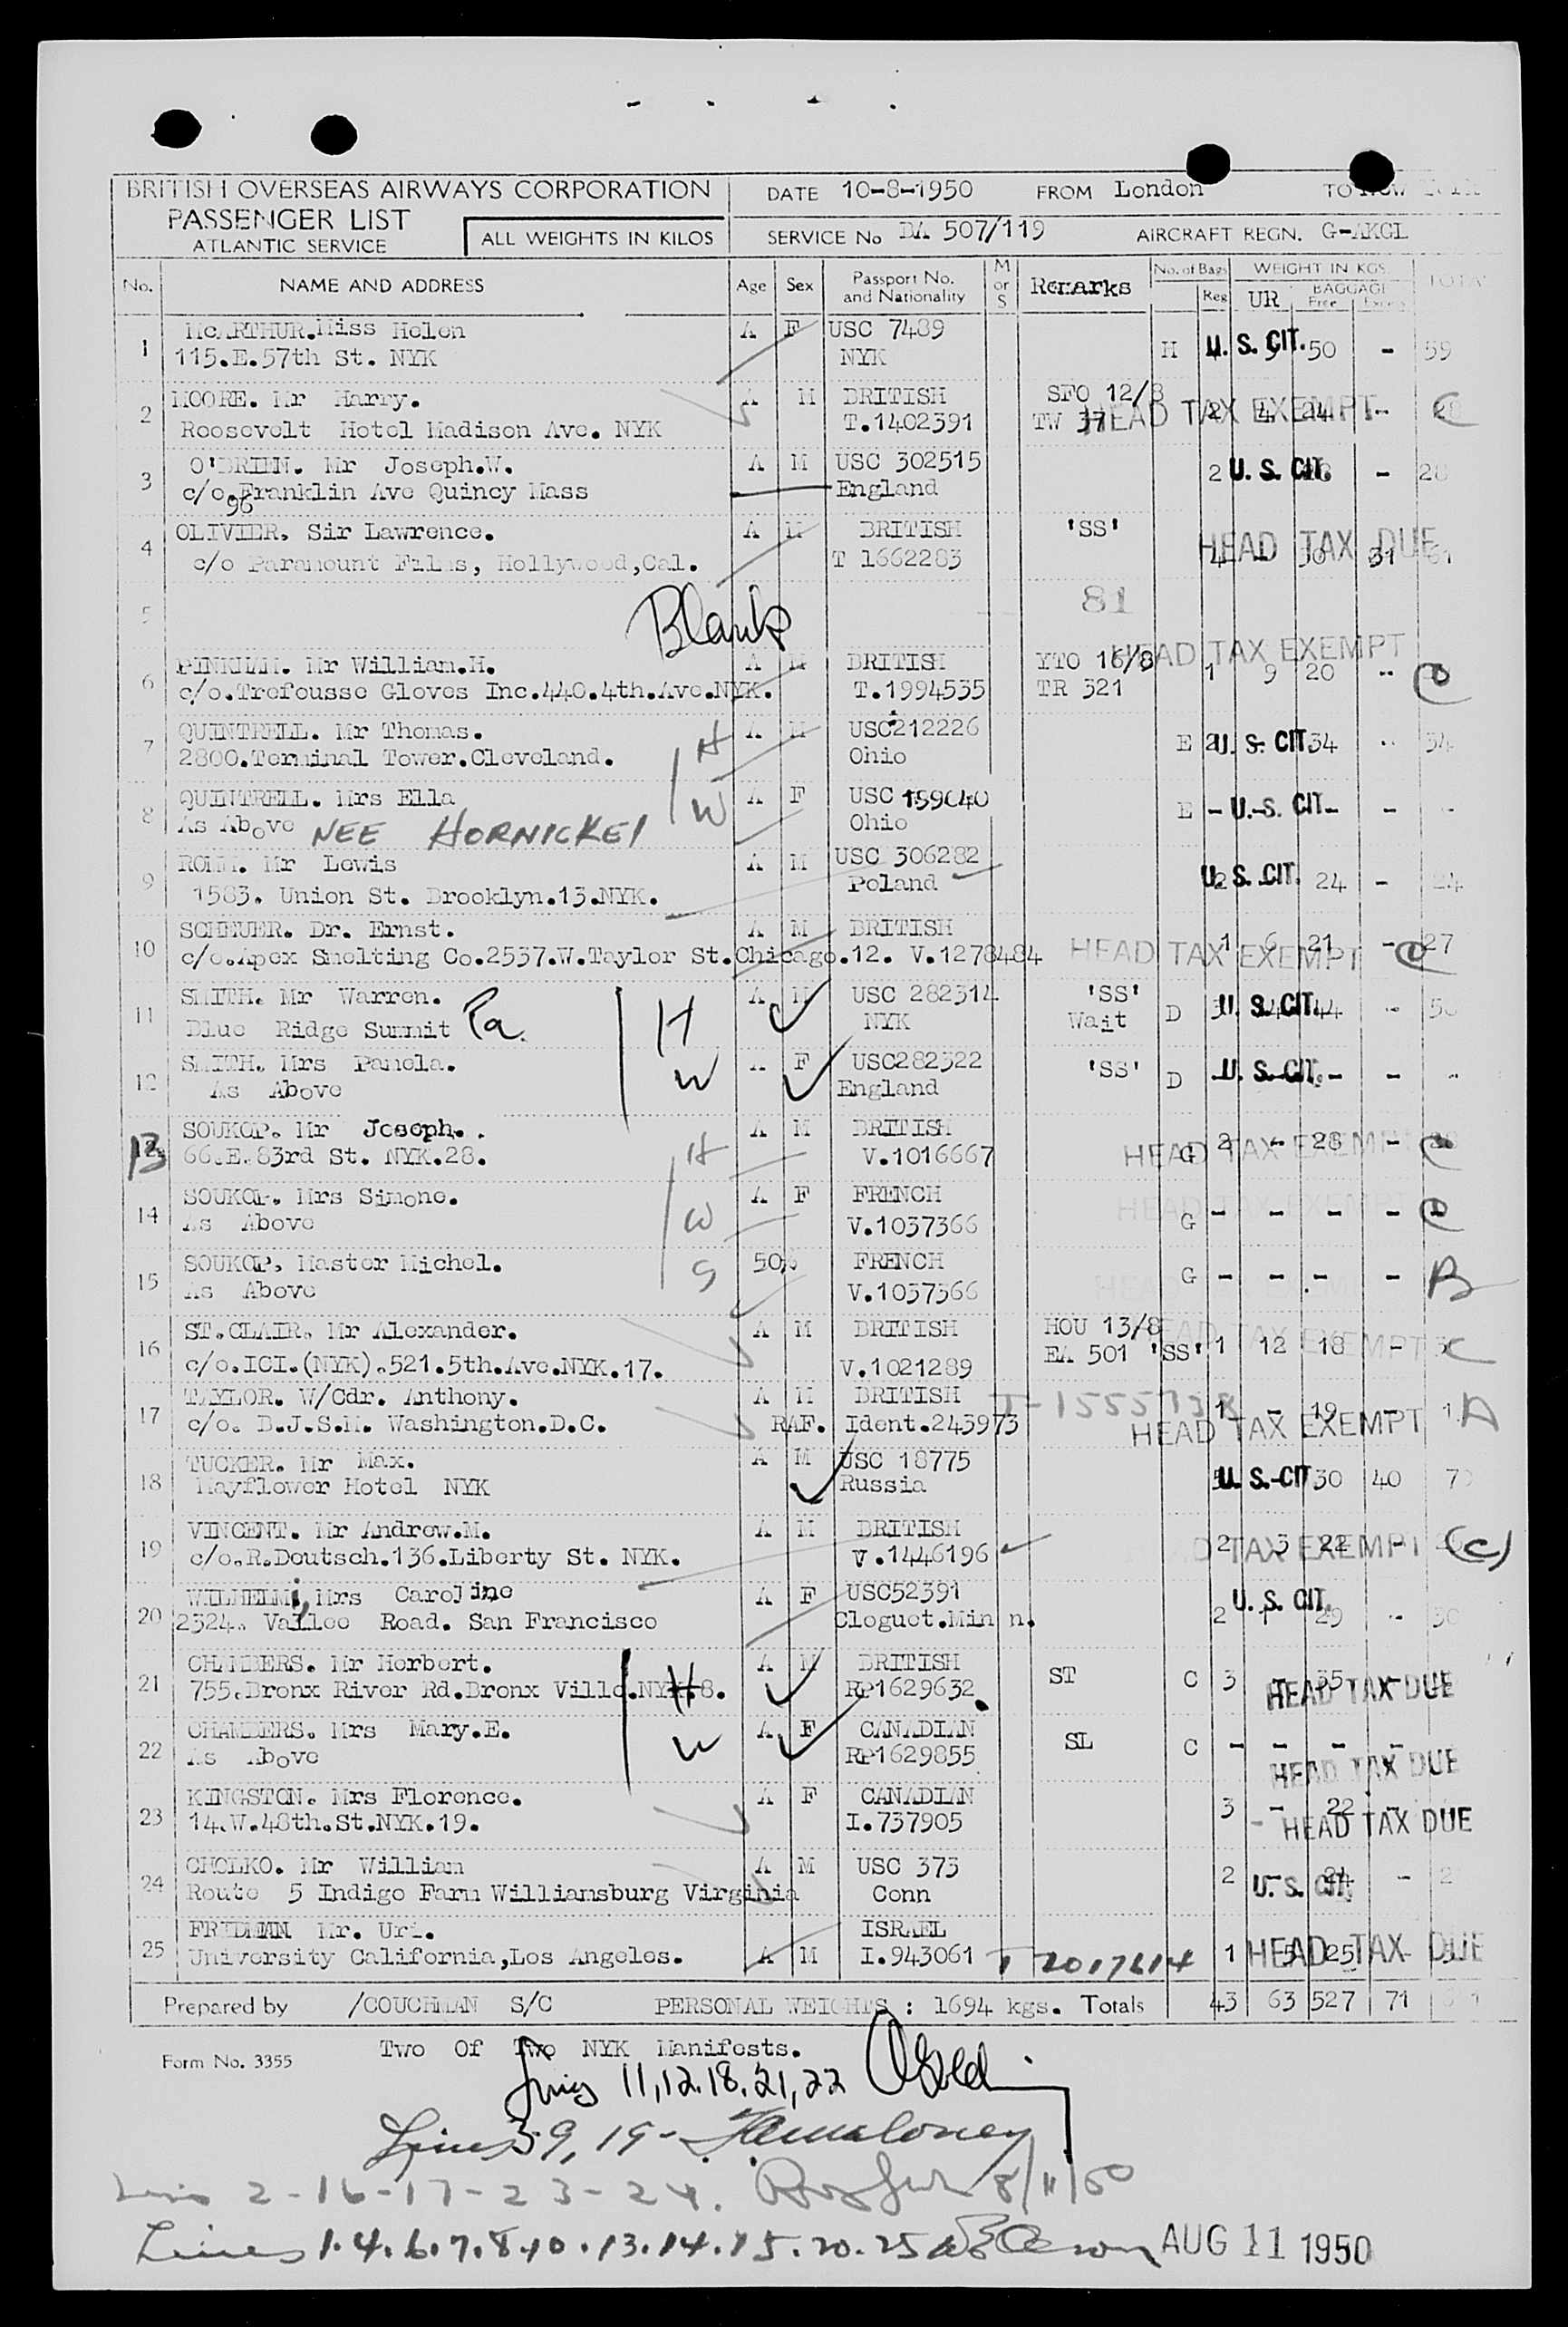 BRITISH OVERSEAS AIRWAYS CORPORATION
PASSENGER LIST
ATLANTIC SERVICE
ALL WEIGHTS IN KILOS
DATE 10-8-1950 FROM London TO
SERVICE No BA 507/119 AIRCRAFT REGN. G-AKGL
No. NAME AND ADDRESS Age Sex Passport No. and Nationality M or S Remarks No. of Bags Reg WEIGHT IN KGS. UR BAGGAGE Free Excess TOTAL
1 McARTHUR. Miss Helen A F USC 7489
115.E.57th St. NYK NYK H U. S. CIT. 50 - 59
2 MOORE. Mr Harry. A M BRITISH SFO 12/8
Roosevelt Hotel Madison Ave. NYK T.1402391 TW 37 HEAD TAX EXEMPT 2 4 24 - C
3 O'BRIEN. Mr Joseph.W. A M USC 302515 2 U. S. CIT. - 28
c/o.Franklin Ave Quincy Mass England
96
4 OLIVIER. Sir Lawrence. A M BRITISH 'SS' HEAD TAX DUE
c/o Paramount Films, Hollywood,Cal. T 1662283 4 - 30 31 61
5 Blank 81
6 PINKHAM. Mr William.H. A M BRITISH YTO 16/8 HEAD TAX EXEMPT
c/o.Trefousse Gloves Inc.440.4th.Ave.NYK. T.1994535 TR 321 1 9 20 - C
7 QUINTRELL. Mr Thomas. H A M USC212226
2800.Terminal Tower.Cleveland. Ohio E U. S. CIT 34 - 34
8 QUINTRELL. Mrs Ella W A F USC 159040
As Above NEE HORNICKEL Ohio E - U. S. CIT - - -
9 Mr Lewis A M USC 306282
1583. Union St. Brooklyn.13.NYK. Poland U. S. CIT. 24 - 24
10 SCHEUER. Dr. Ernst. A M BRITISH
c/o.Apex Smelting Co.2537.W.Taylor St.Chicago.12. V.1278484 HEAD TAX EXEMPT 1 6 21 - C 27
11 SMITH. Mr Warren. H A M USC 282314 'SS'
Blue Ridge Summit Pa. NYK Wait D U. S. CIT. 44 -
12 SMITH. Mrs Pamela. W A F USC282322 'SS' D - U. S. CIT. - - -
As Above England
13 SOUKOP. Mr Joseph. H A M BRITISH
66.E.83rd St. NYK.28. V.1016667 HEAD TAX EXEMPT G 2 - 28 - C
14 SOUKOP. Mrs Simone. W A F FRENCH HEAD TAX EXEMPT
As Above V.1037366 G - - - - C
15 SOUKOP, Master Michel. S 50% FRENCH
As Above V.1037366 G - - - - B
16 ST.CLAIR. Mr Alexander. A M BRITISH HOU 13/8 HEAD TAX EXEMPT
c/o.ICI.(NYK).521.5th.Ave.NYK.17. V.1021289 EA 501 'SS' 1 12 18 - C
17 TAYLOR. W/Cdr. Anthony. A M BRITISH
c/o. B.J.S.M. Washington.D.C. RAF. Ident.243973 HEAD TAX EXEMPT 1 - 19 - A
18 TUCKER. Mr Max. A M USC 18775
Mayflower Hotel NYK Russia U. S. CIT 30 40 70
19 VINCENT. Mr Andrew.M. A M BRITISH
c/o.R.Deutsch.136.Liberty St. NYK. V.1446196 TAX EXEMPT 2 3 22 - (C)
20 WILHELMI, Mrs Caroline A F USC52391 U. S. CIT.
2324. Vallee Road. San Francisco Cloguet.Minn. 2 1 29 - 30
21 CHAMBERS. Mr Herbert. H A M BRITISH ST C 3 - 35 -
755.Bronx River Rd.Bronx Ville.NYK.8. RP1629632 HEAD TAX DUE
22 CHAMBERS. Mrs Mary.E. W A F CANADIAN SL C - - - -
As Above RP1629855 HEAD TAX DUE
23 KINGSTON. Mrs Florence. A F CANADIAN 3 - 22 -
14.W.48th.St.NYK.19. I.737905 HEAD TAX DUE
24 CHOLKO. Mr William A M USC 373 2 - 24 - 2
Route 5 Indigo Farm Williamsburg Virginia Conn U. S. CIT.
25 FRIDMAN Mr. Uri. ISRAEL
University California,Los Angeles. A M I.943061 T 2017614 1 5 25 - HEAD TAX DUE
Prepared by /COUCHMAN S/C PERSONAL WEIGHTS : 1694 kgs. Totals 43 63 527 71
Form No. 3355 Two Of Two NYK Manifests.
Lines 11,12.18.21,22
Lines 3 9, 19 -
Lines 2-16-17-23-24. 8/11/50
Lines 1.4.6.7.8.10.13.14.15.20.25 AUG 11 1950